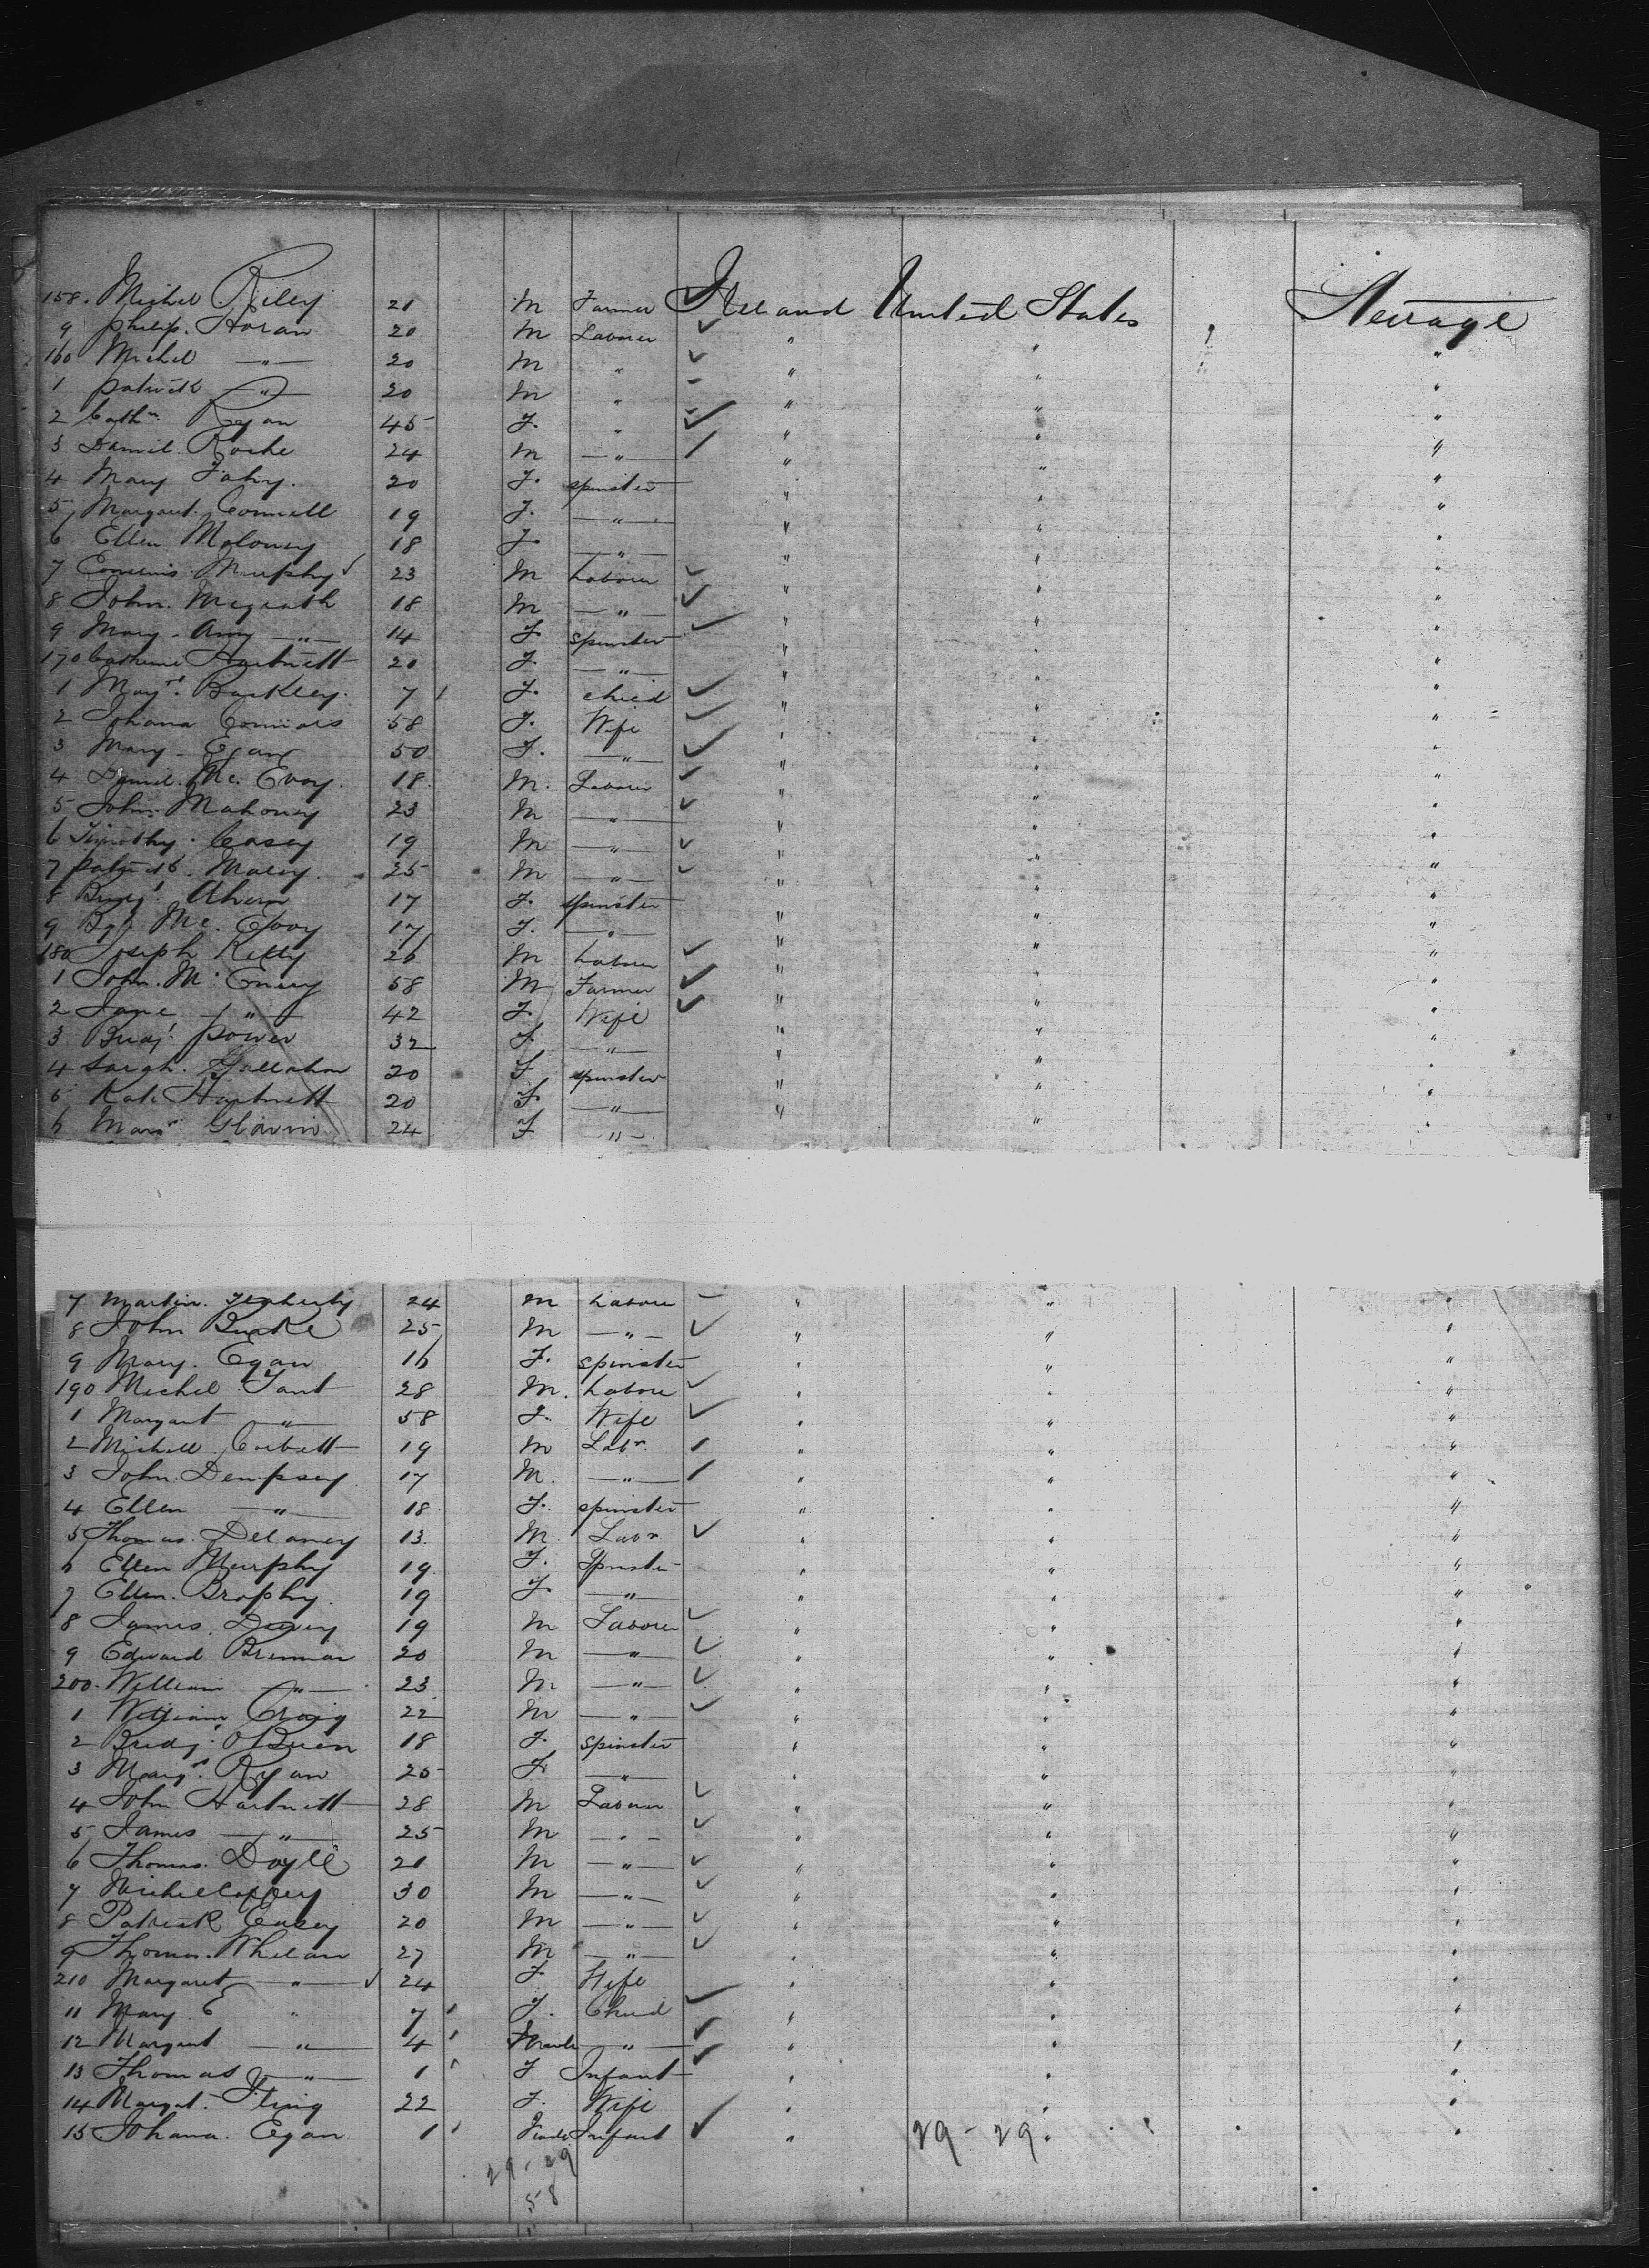 158. Michel Riley 21 M Farmer Ireland United States Steerage
9 Philip. Horan 20 M Laborer " " "
160 Michel —"— 20 M " " " "
1 Patrick —"— 20 M " " " "
2 Cathn. Ryan 45 F. " " " "
3 Daniel. Roche 24 M —"— " " "
4 Mary Fahy. 20 F. spinster " " "
5 Margaret. Connell 19 F. —"— " " "
6 Ellen Moloney 18 F. —"— " " "
7 Murphy 23 M Laborer " " "
8 John. Megrath 18 M —"— " " "
9 Mary. Amy —"— 14 F. spinster " " "
170 Catherine Hartnett 20 F. —"— " " "
1 Magt. Barkley. 7 F. child " " "
2 Johana Connors 58 F. Wife " " "
3 Mary. Egan 50 F. —"— " " "
4 Daniel. Mc. Evoy. 18 M. Laborer " " "
5 John. Mahoney 23 M —"— " " "
6 Timothy. Casey 19 M —"— " " "
7 Patrick. 25 M —"— " " "
8 Bridgt. Ahern 17 F. spinster " " "
9 Bgt. Mc. Evoy 17 F. —"— " " "
180 Joseph Kelly 26 M Laborer " " "
1 John. Mc Enery 58 M Farmer " " "
2 Jane —"— 42 F. Wife " " "
3 Bridgt. Power 32 F. —"— " " "
4 Sarah. Gallahar 20 F spinster " " "
5 Kate Hartnett 20 F —"— " " "
6 Glavin 24 F —"— " "
7 Martin. Flaherty 24 M Laborer " " "
8 John Burke 25 M —"— " " "
9 Mary. Egan 16 F. spinster " " "
190 Michel Fant 28 M. Laborer " " "
1 Margaret —"— 58 F. Wife " " "
2 Michell Corbett 19 M Labr. " " "
3 John. Dempsey 17 M. —"— " " "
4 Ellen —"— 18 F. spinster " " "
5 Thomas. Delaney 13. M. Labr " " "
6 Ellen Murphy 19 F. Spinster " " "
7 Ellen. Brophy. 19 F. —"— " " "
8 James. 19 M Laborer " " "
9 Edward Brennan 20 M —"— " " "
200. William —"— 23 M —"— " " "
1 William Craig 22 M —"— " " "
2 Bridgt. O'Brien 18 F. Spinster " " "
3 Margt. Ryan 25 F. —"— " " "
4 John. Hartnett 28 M Laborer " " "
5 James —"— 25 M —"— " " "
6 Thomas. Doyle 21 M —"— " " "
7 30 M —"— " " "
8 Patrick Casey 20 M —"— " " "
9 Thomas. Whelan 27 M —"— " " "
210 Margaret —"— 24 F Wife " " "
11 Mary E " 7 F. Child " " "
12 Margaret —"— 4 Female —"— " " "
13 Thomas —"— 1 F Infant " " "
14 Margt. 22 F. Wife " " "
15 Johana. Egan 1 Female Infant " 29-29 "
29-29
58